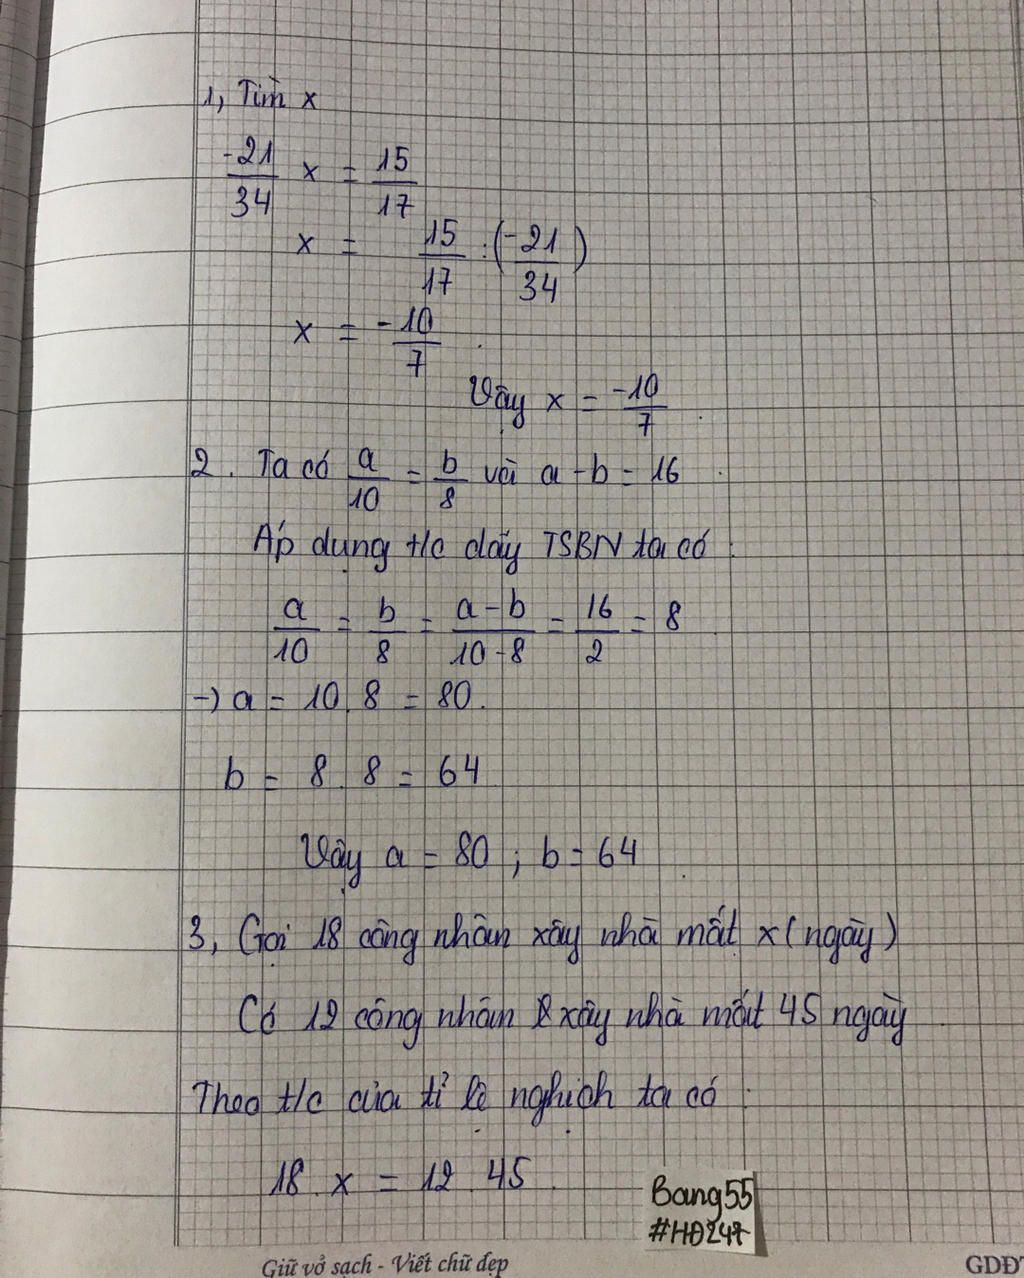 1, Tìm x
-21/34 x = 15/17
x = 15/17 : (-21/34)
x = -10/7
Vậy x = -10/7
2. Ta có a/10 = b/8 và a - b = 16
Áp dụng t/c dãy TSBN ta có:
a/10 = b/8 = a-b/10-8 = 16/2 = 8
→ a = 10.8 = 80.
b = 8.8 = 64
Vậy a = 80; b = 64
3, Gọi 18 công nhân xây nhà mất x (ngày)
Có 12 công nhân xây nhà mất 45 ngày
Theo t/c của tỉ lệ nghịch ta có:
18.x = 12.45
Bang55
#HĐ247
Giữ vở sạch - Viết chữ đẹp
GDĐT